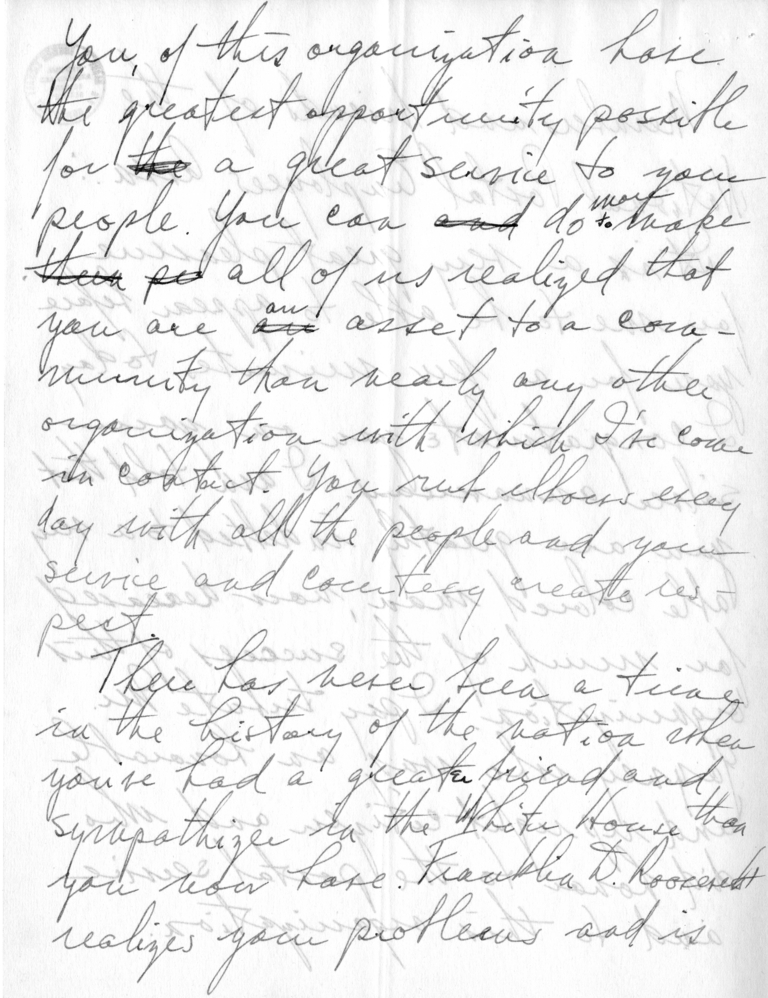 You, of this organization have
the greatest opportunity possible
for the a great service to your
people. You can and do more to make
them pe all of us realized that
you are an an asset to a com-
munity than nearly any other
organization with which I've come
in contact. You rub elbows every
day with all the people and your
service and courtesy create res-
pect.
There has never been a time
in the history of the nation when
you've had a greater friend and
sympathizer in the White House than
you now have. Franklin D. Roosevelt
realizes your problems and is